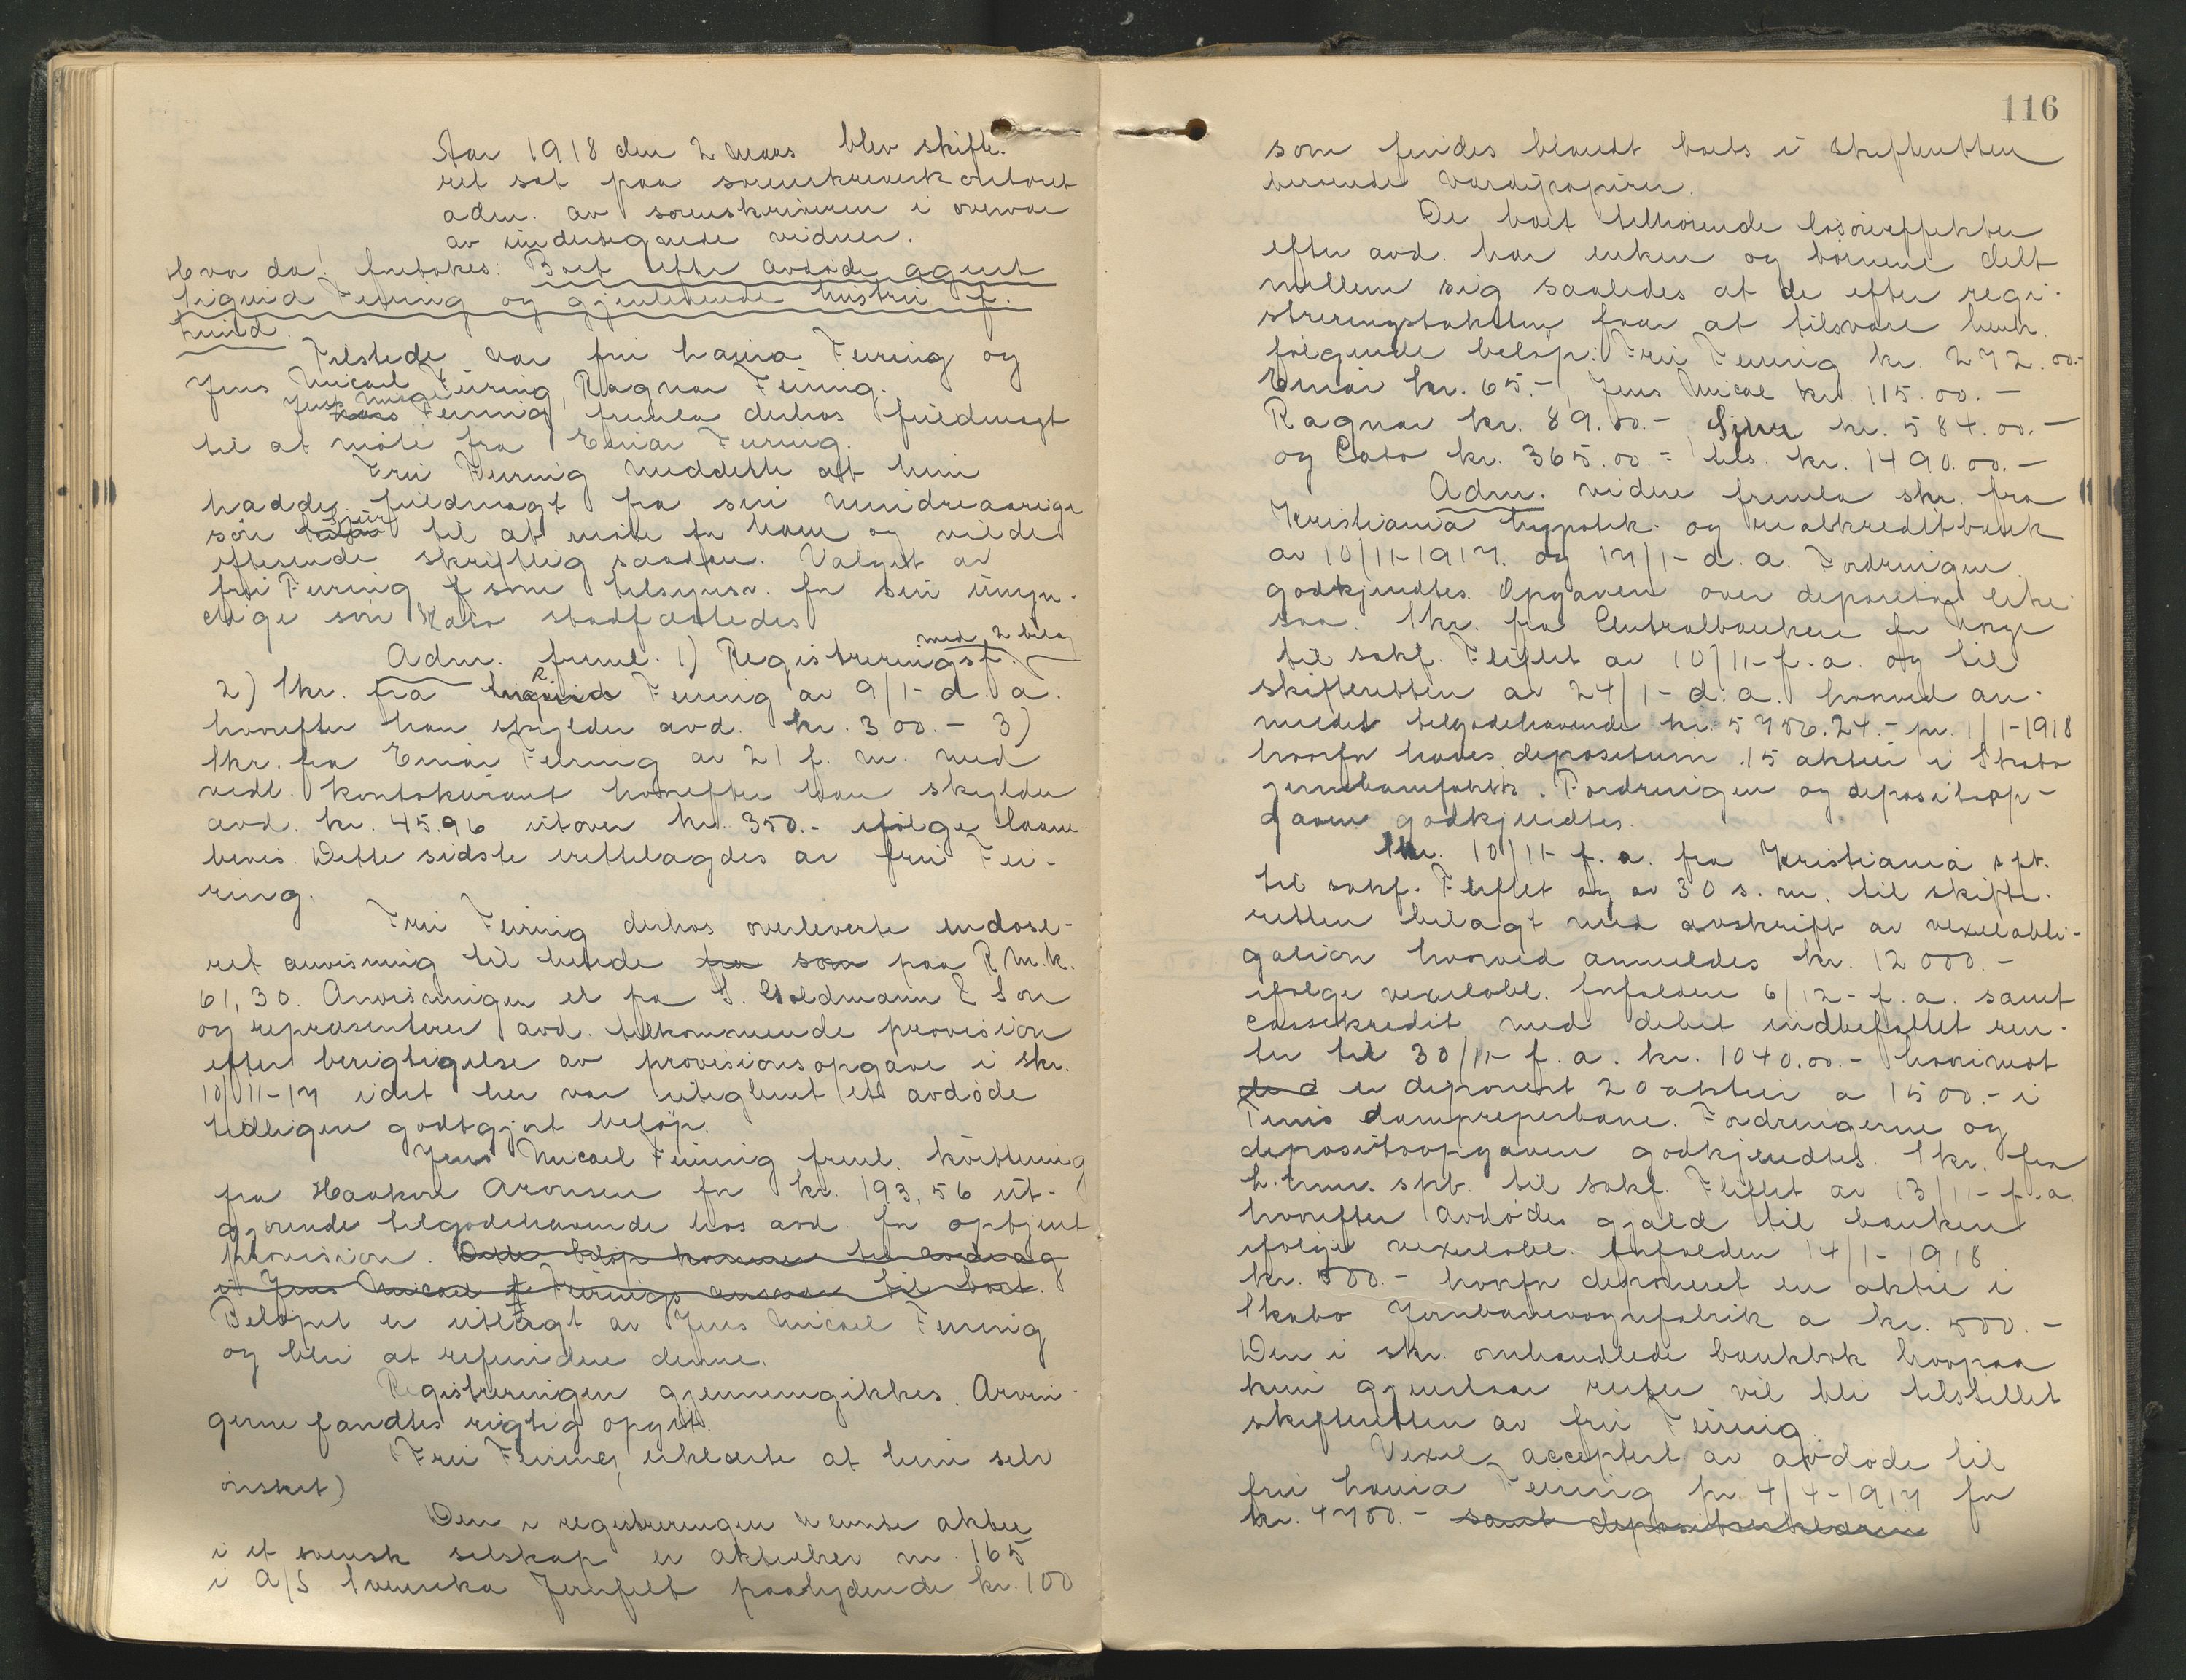 Aar 1918 den 2 mars blev skifte-
ret sat paa sorenskriverkontoret
adm. av sorenskriveren i overvær
av undertegnede vidner.
Hvor da! foretokes: Boet efter avdøde agent
Feiring og gjenlevende hustru f.
Tilstede var fru Feiring og
Jens Micael Feiring, Ragnar Feiring.
Feiring fremla derhos fuldmagt
til at møte fra Einar Feiring.
Fru Feiring meddelte at hun
hadde fuldmagt fra sin mindreaarige
søn til at møte for ham og vilde
eftersende skriftlig saadan. Valget av
fru Feiring som tilsynsv. for sin umyn-
dige søn Kato stadfæstedes
med 2 bilag
Adm. freml. 1) Registreringsf.
2) Skr. fra Feiring av 9/1- d. a.
hvorefter han skylder avd. kr. 300.- 3)
Skr. fra Einar Feiring av 21 f. m. med
vedl. kontokurant hvorefter han skylder
avd. kr. 45.96 utover kr. 350.- ifølge laane-
bevis. Dette sidste rettelagdes av fru Fei-
ring.
Fru Feiring derhos overleverte endose-
ret anvisning til hende fra som paa R.m.k.
61,30. Anvisningen er fra S. Goldmann & Son
og repræsenterer avd. tilkommende provision
efter berigtigelse av provisionsopgave i skr.
10/11-17 idet her var uteglemt et avdøde
tidligere godtgjort beløp.
Jens Micael Feiring freml. kvittering
fra Haakon Aronsen for kr. 193,56 ut-
gjørende tilgodehavende hos avd. for optjent
provision. Dette beløp kommer til avdrag
i Jens Micael Feirings ansvar til boet.
Beløpet er utlagt av Jens Micael Feiring
og blir at refundere denne.
Registreringen gjennemgikkes. Arvin-
gerne fandtes rigtig opgit.
Fru Feiring erklærte at hun selv
ønsket)
Den i registreringen nævnte aktie
i et svensk selskap er aktiebrev nr. 165
i A/S Svenska Jernfelt paalydende kr. 100
116
som findes blandt boets i skifteretten
beroende værdipapirer.
De boet tilhørende løsøreeffekter
efter avd. har enken og børnene delt
mellem sig saaledes at de efter regi-
streringstaksten faar at tilsvare henh.
følgende beløp: Fru Feiring kr. 272.00.-
Einar kr. 65.- Jens Micael kr. 115.00.-
Ragnar kr. 89.00.- kr. 584.00.-
og Cato kr. 365.00.= tils. kr. 1490.00.-
Adm. videre fremla skr. fra
Kristiania hypotek- og realkreditbank
av 10/11-1917. og 17/1- d. a. Fordringen
godkjendtes. Opgaven over depositoa like-
saa. Skr. fra Centralbanken for Norge
til sakf. Fliflet av 10/11- f. a. og til
skifteretten av 24/1- d. a. hvorved an-
meldt tilgodehavende kr. 5756.24.- pr. 1/1-1918
hvorfor haves depositum 15 aktier i Skabo
jernbanefabrik. Fordringen og depositaop-
gaven godkjendtes.
Skr. 10/11- f. a. fra Kristiania spb.
til sakf. Fliflet og av 30 s. m. til skifte-
retten bilagt med avskrift av vexelobli-
gation hvorved anmeldes kr. 12000.-
ifølge vexelobl. forfalden 6/12- f. a. samt
cassekredit med debet indbefattet ren-
ter til 30/11- f. a. kr. 1040.00.- hvorimot
er deponert 20 aktier a 1500.- i
dampreperbane. Fordringerne og
depositoopgaven godkjendtes. Skr. fra
spb. til sakf. Fliflet av 13/11- f. a.
hvorefter avdødes gjæld til banken
ifølge vexelobl. forfalden 14/1- 1918
kr. 500.- hvorfor deponeret en aktie i
Skabo Jernbanevognfabrik a kr. 500.-
Den i skr. omhandlede bankbok hvorpaa
kun gjenstaar renter vil bli tilstillet
skifteretten av fru Feiring.
Vexel accepteret av avdøde til
fru Feiring pr. 4/4-1917 for
kr. 4700.- samt depositoerklæring